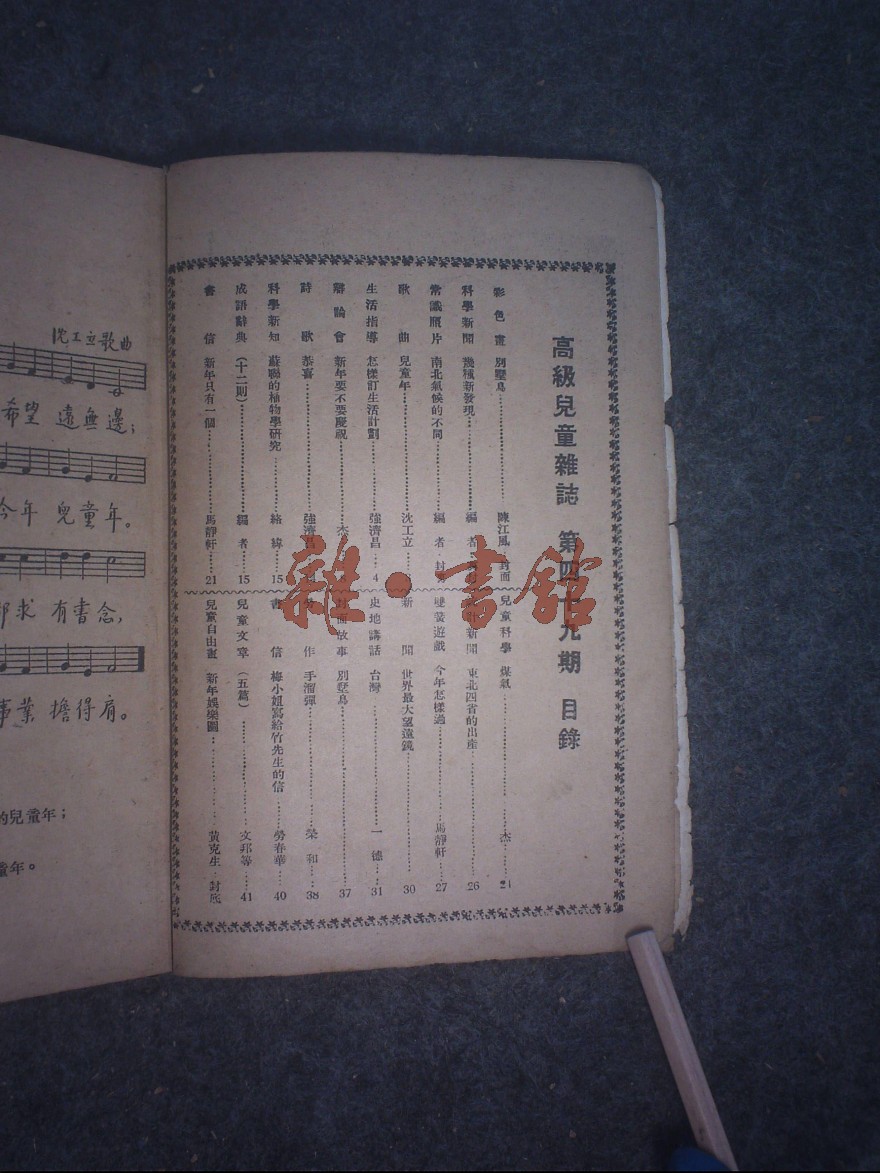 高級兒童雜誌 第四十九期 目錄
彩色畫 別墅鳥 陳江風 封面
科學新聞 幾種新發現 編者
常識照片 南北氣候的不同 編者 封
歌曲 兒童年 沈工立
生活指導 怎樣訂生活計劃 強濟昌 4
辯論會 新年要不要慶祝 杰
詩歌 恭喜 強濟昌
科學新知 蘇聯的植物學研究 絡緯 15
成語辭典(十二則) 編者 15
書信 新年只有一個 馬靜軒 21
兒童科學 煤氣 杰 21
新聞 東北四省的出產 26
遊戲 今年怎樣過 馬靜軒 27
新聞 世界最大望遠鏡 30
史地講話 台灣 一德 31
封面故事 別墅鳥 37
勞作 手溜彈 榮和 38
書信 梅小姐寫給竹先生的信 勞春華 40
兒童文章(五篇) 文邦等 41
兒童自由畫 新年娛樂圖 黃克生 封底
沈工立歌曲
希望 遠無邊;
今年 兒童年。
求 有書念,
事業 擔得肩。
的兒童年;
童年。
雜·書館